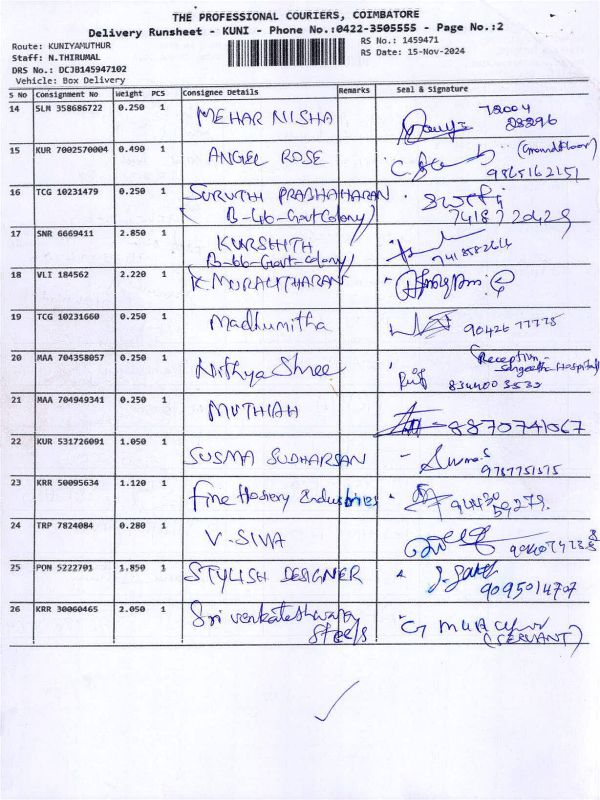 THE PROFESSIONAL COURIERS, COIMBATORE
Delivery Runsheet - KUNI - Phone No.:0422-3505555 - Page No.:2
Route: KUNIYAMUTHUR
RS No.: 1459471
Staff: N.THIRUMAL
RS Date: 15-Nov-2024
DRS No.: DCJB145947102
Vehicle: Box Delivery
S No Consignment No Weight PCS Consignee Details Remarks Seal & Signature
14 SLM 358686722 0.250 1 MEHAR NISHA 72004
28296
15 KUR 7002570004 0.490 1 ANGEL ROSE (Ground Floor)
9865162151
16 TCG 10231479 0.250 1 SURUTHI PRABHAHARAN
(B-46-Govt Colony) 7418720429
17 SNR 6669411 2.850 1 KURSHITH
(B-66-Govt-Colony)
18 VLI 184562 2.220 1 K.MURALITHARAN
19 TCG 10231660 0.250 1 Madhumitha 90426 77775
20 MAA 704358057 0.250 1 Nithya Shree (Reception -
Sangeetha Hospital)
8344003532
21 MAA 704949341 0.250 1 MUTHIAH 8870741067
22 KUR 531726091 1.050 1 SUSMA SUDHARSAN
9787751575
23 KRR 50095634 1.120 1 Fine Hosiery Industries 94430
59279
24 TRP 7824084 0.280 1 V-SIVA
25 PON 5222701 1.850 1 STYLISH DESIGNER
9095014707
26 KRR 30060465 2.050 1 Sri Venkateshwara
Steels
(SERVANT)